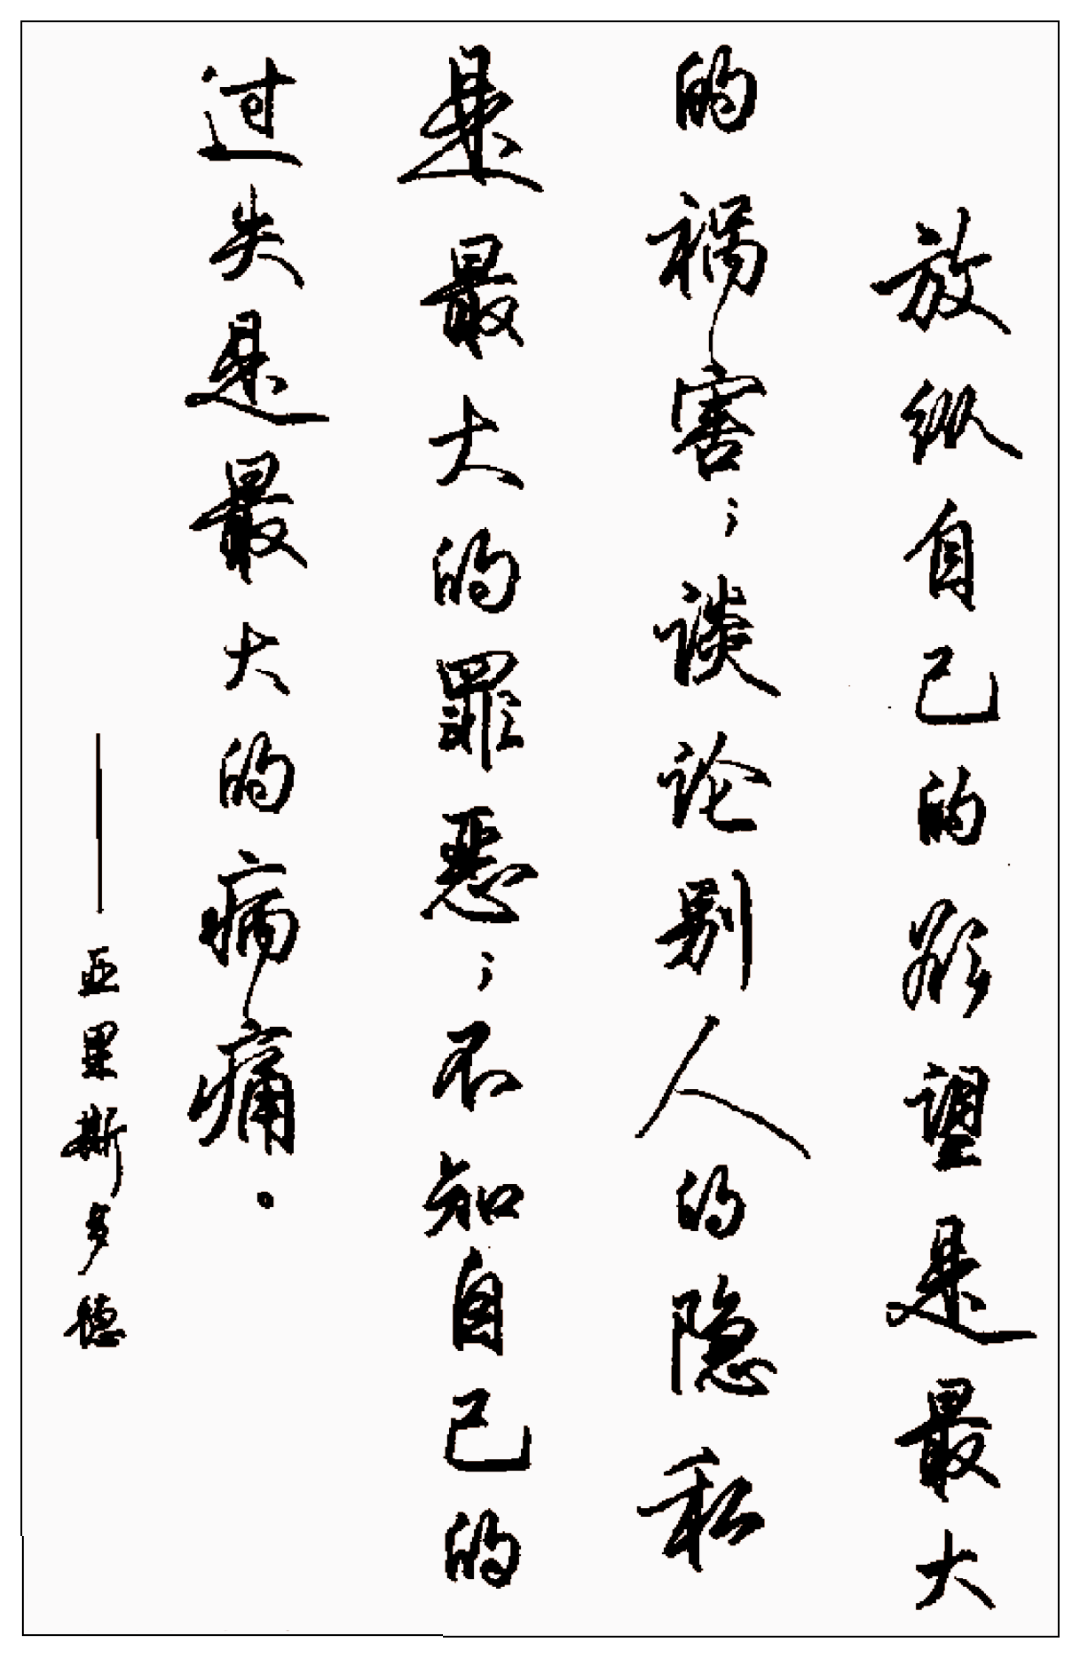 放纵自己的欲望是最大
的祸害；谈论别人的隐私
是最大的罪恶；不知自己的
过失是最大的病痛。
——亚里斯多德